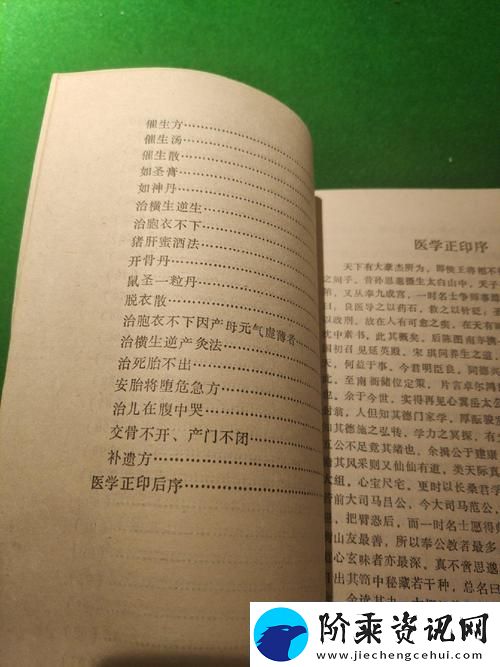 催生方
催生汤
催生散
如圣膏
如神丹
治横生逆生
治胞衣不下
猪肝蜜酒法
开骨丹
鼠圣一粒丹
脱衣散
治胞衣不下因产母元气虚薄者
治横生逆产灸法
治死胎不出
安胎将堕危急方
治儿在腹中哭
交骨不开、产门不闭
补遗方
医学正印后序
医学正印序
天下有大豪杰所为，即侯王将相不
之间乎。昔孙思邈摄生太白山中，天子
，又从幸九成宫，一时名士争师事
，良医导之以药石，救之以针
以政刑。故在人有可愈之疾，在天
忱中素书，此其概矣。后陈图南
国初召见延英殿，宋琪问养生之道
天，何益于事。今君明臣良，同德
至南衙储位定策，片言卓尔
，余于今世，实得再见心翼岳太公
封翁，人但知其德门家学，厚
知其德施之弘特，学力之冥探，有
五公不足竟其绪也。余揖公于建康
其风采则又仙仙有道，类天际真
大组，心宝尺宅，更时以长桑君
前大司马吕公，今大司马范公，
，把臂恐后，而一时名士愿得
山友最善，所以奉公教者最多
心玄味者亦最深，真不啻思邈
出其笥中秘藏若干种，总名曰
阶乘资讯网
www.jiechengcehui.com